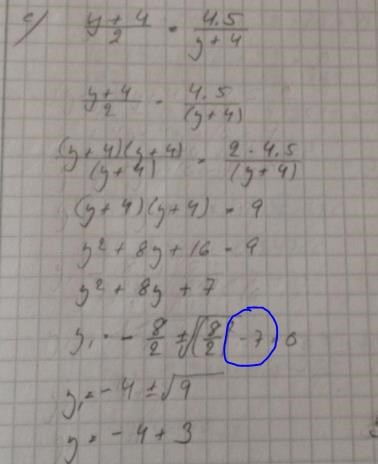 c)
(y + 4)/2 = 4.5/(y + 4)
(y + 4)/2 = 4.5/(y + 4)
(y + 4)(y + 4)/(y + 4) = 2 · 4.5/(y + 4)
(y + 4)(y + 4) = 9
y² + 8y + 16 = 9
y² + 8y + 7
y₁ = - 8/2 ± √(8/2)² - 7 = 0
y₁ = - 4 ± √9
y = - 4 + 3